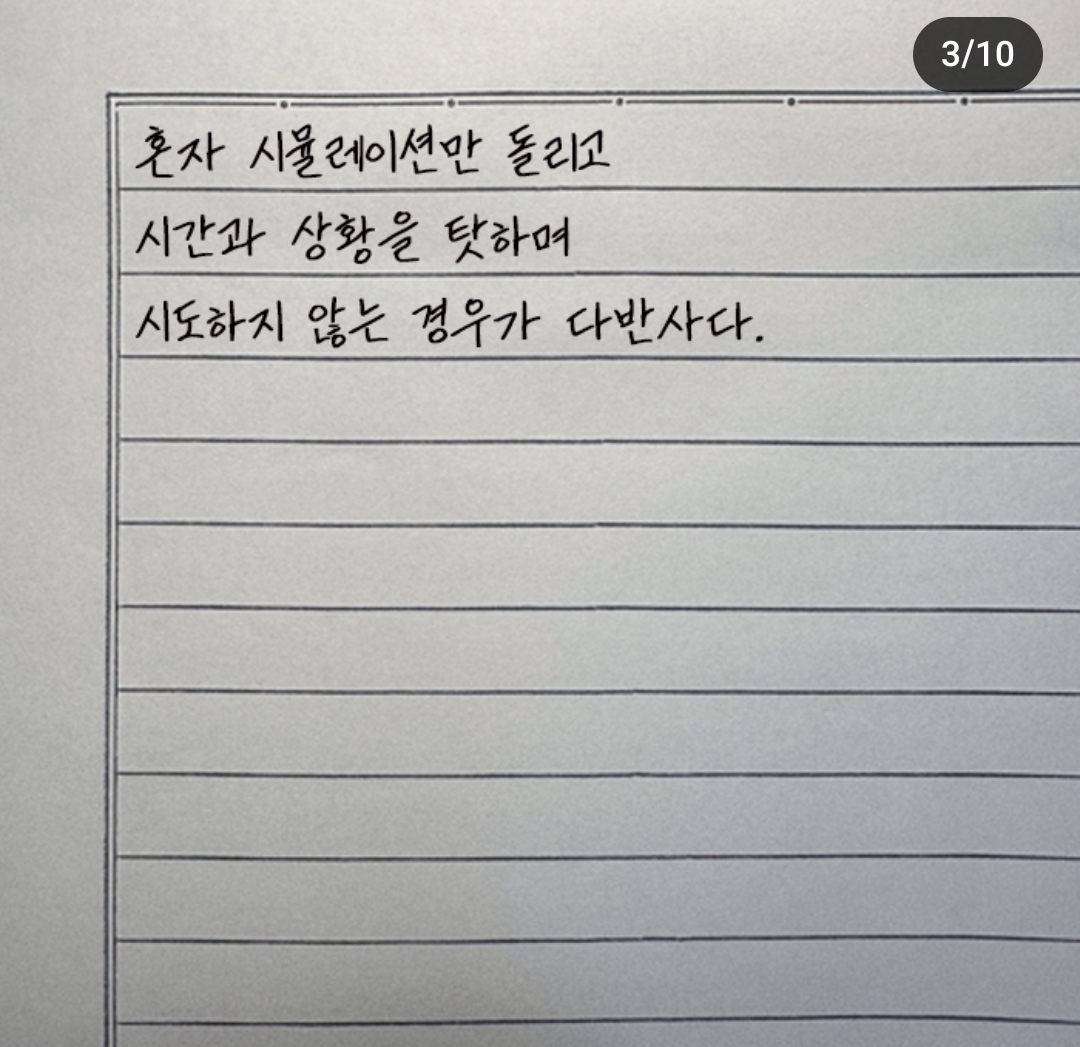 3/10
혼자 시뮬레이션만 돌리고
시간과 상황을 탓하며
시도하지 않는 경우가 다반사다.